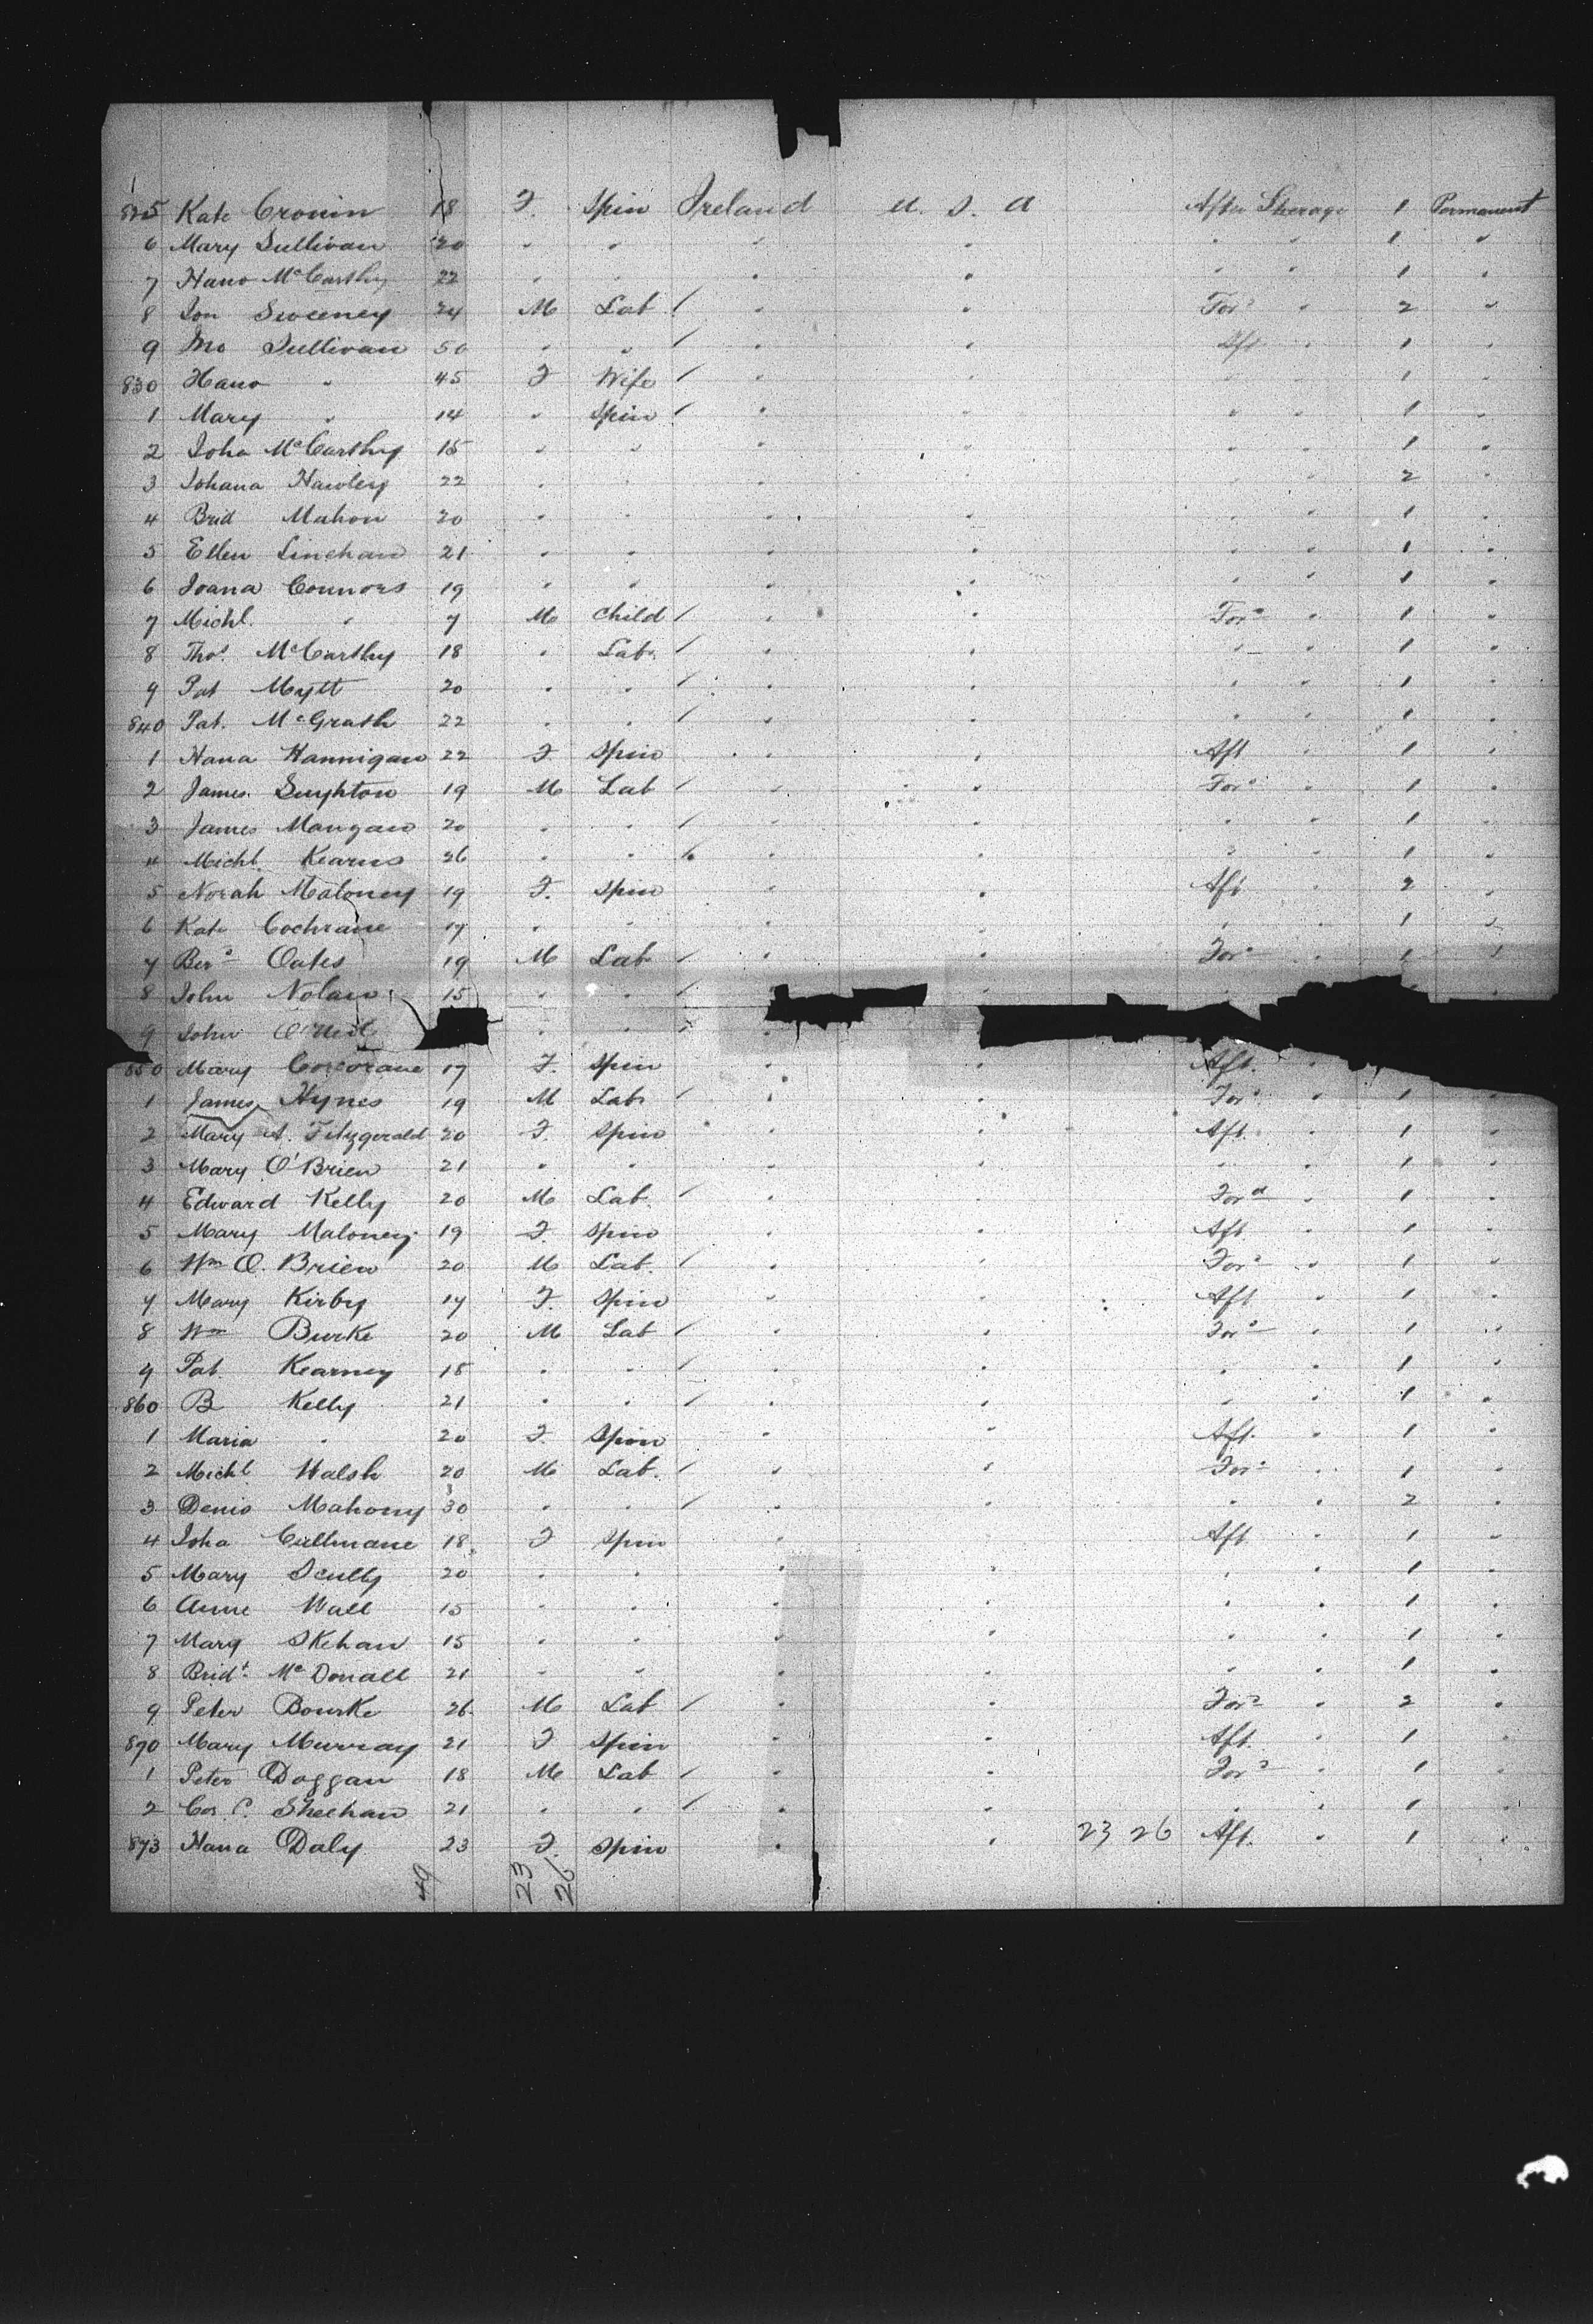 825 Kate Cronin 18 F. Spin Ireland U. S. A After Steerage 1 Permanent
6 Mary Sullivan 20 " " " " " " 1 "
7 Hano McCarthy 22 " " " " " " 1 "
8 Jon Sweeney 24 M Lab / " " For^d " 2 "
9 Jno Sullivan 50 " " / " " Aft " 1 "
830 Hano " 45 F Wife / " " " " 1 "
1 Mary " 14 " Spin / " " " " 1 "
2 Joha McCarthy 15 " " " " " " 1 "
3 Johana Hawley 22 " " " " " " 2 "
4 Brid Mahon 20 " " " " " " 1 "
5 Ellen Linehan 21 " " " " " " 1 "
6 Joana Connors 19 " " " " " " 1 "
7 Michl. " 7 M Child / " " For^d " 1 "
8 Thos. McCarthy 18 " Lab. / " " " " 1 "
9 Pat 20 " " / " " " " 1 "
840 Pat. McGrath 22 " " / " " " " 1 "
1 Hana Hannigan 22 F Spin " " Aft " 1 "
2 James 19 M Lab / " " For^d " 1 "
3 James Mangan 20 " " / " " " " 1 "
4 Michl. Kearns 26 " " " " " " 1 "
5 Norah Maloney 19 F. Spin " " Aft " 2 "
6 Kate Cochrane 17 " " " " " " 1 "
7 Ber^d Oates 19 M Lab / " " For^d " 1 "
8 John Nolan 15 " " / " "
9 John O'Neil " " / "
850 Mary Corcorane 17 F. Spin " " Aft. "
1 James Hynes 19 M Lab / " " For^d " 1 "
2 Mary A. Fitzgerald 20 F. Spin " " Aft. " 1 "
3 Mary O'Brien 21 " " " " " " 1 "
4 Edward Kelly 20 M Lab. / " " For^d " 1 "
5 Mary Maloney 19 F Spin " " Aft " 1 "
6 Wm O. Brien 20 M Lab. / " " For^d " 1 "
7 Mary Kirby 17 F. Spin " " Aft " 1 "
8 Wm Burke 20 M Lab / " " For^d " 1 "
9 Pat. Kearney 18 " " / " " " " 1 "
860 B Kelly 21 " " / " " " " 1 "
1 Maria " 20 F. Spin " " Aft. " 1 "
2 Michl Walsh 20 M Lab. / " " For^d " 1 "
3 Denis Mahony 30 " " / " " " " 2 "
4 Joha Cullinane 18 F Spin " " Aft. " 1 "
5 Mary Scully 20 " " " " " " 1 "
6 Anne Wall 15 " " " " " " 1 "
7 Mary Skehan 15 " " " " " " 1 "
8 Bridt. McDonall 21 " " " " " " 1 "
9 Peter Bourke 26 M Lab / " " For^d " 2 "
870 Mary Murray 21 F Spin " " Aft. " 1 "
1 Peter Doggan 18 M Lab / " " For^d " 1 "
2 C. Sheehan 21 " " / " " " " 1 "
873 Hana Daly 23 F. Spin " " 23 26 Aft. " 1 "
49 23 26